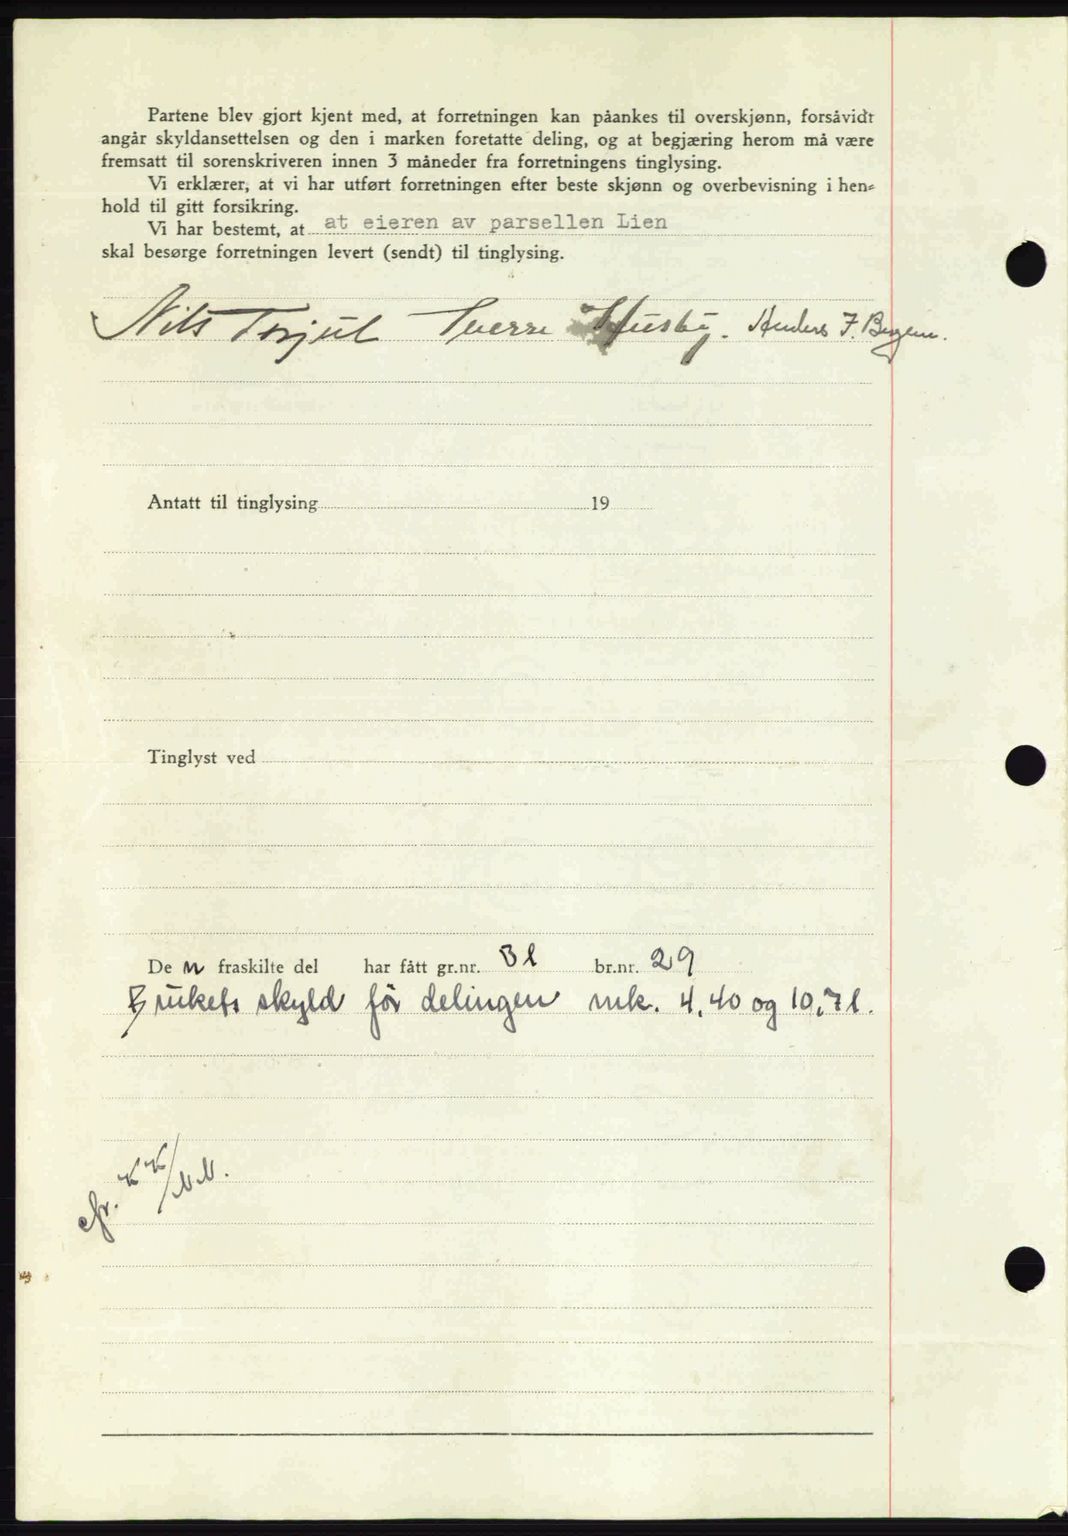 Partene blev gjort kjent med, at forretningen kan påankes til overskjønn, forsåvidt
angår skyldansettelsen og den i marken foretatte deling, og at begjæring herom må være
fremsatt til sorenskriveren innen 3 måneder fra forretningens tinglysing.
Vi erklærer, at vi har utført forretningen efter beste skjønn og overbevisning i hen-
hold til gitt forsikring.
Vi har bestemt, at at eieren av parsellen Lien
skal besørge forretningen levert (sendt) til tinglysing.
Nils Torjul Sverre Husby. Anders J. Bergem.
Antatt til tinglysing 19
Tinglyst ved
De n fraskilte del har fått gr.nr. 31 br.nr. 29
Brukets skyld før delingen mk. 4,40 og 10,71.